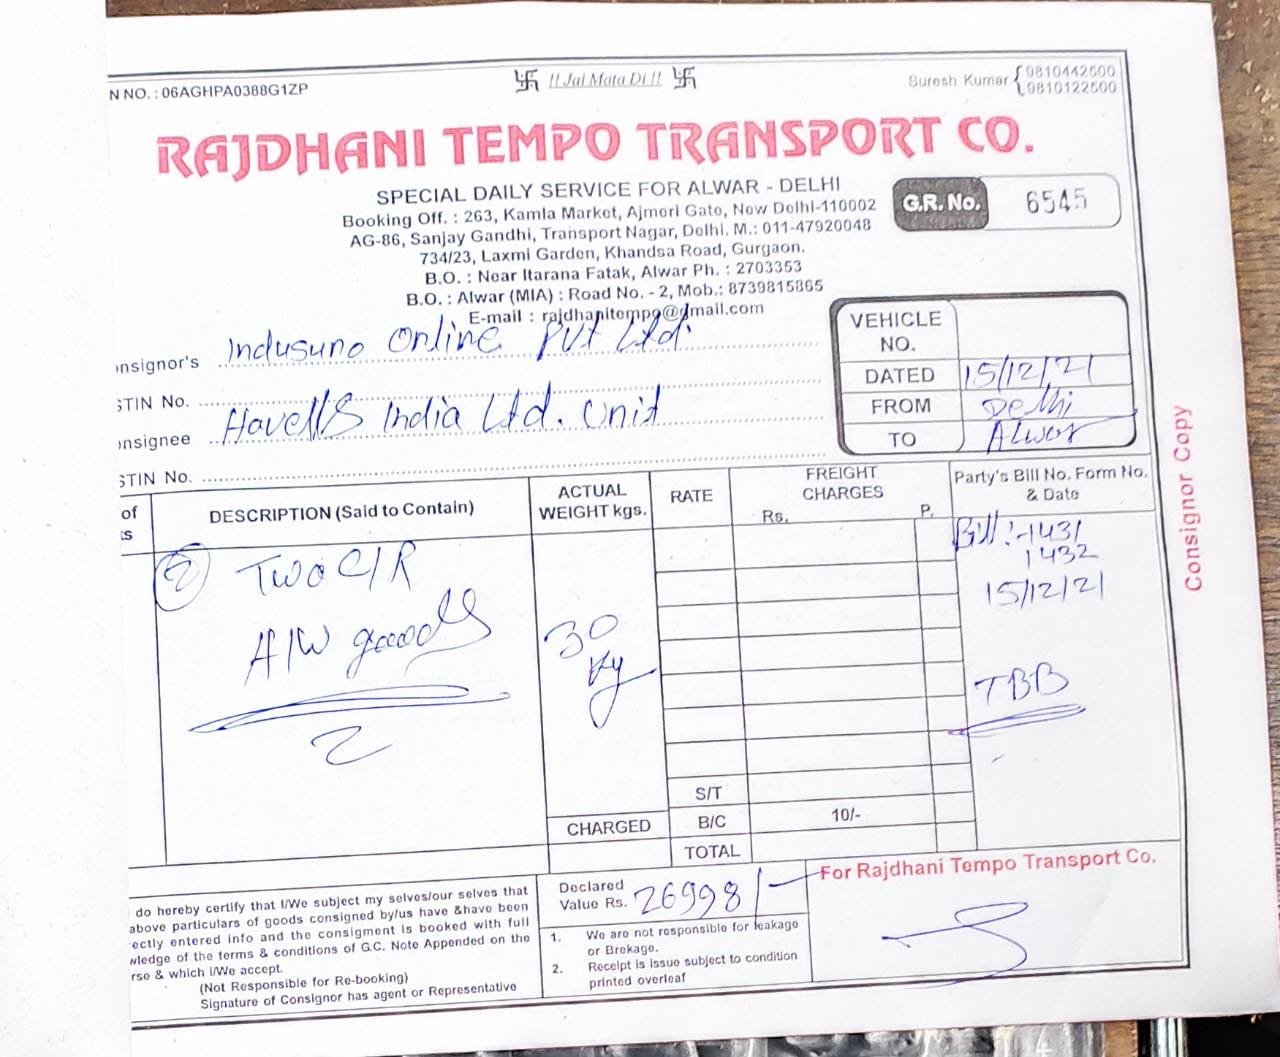 N NO. : 06AGHPA0388G1ZP
卐 !! Jai Mata Di !! 卐
Suresh Kumar { 9810442500
9810122500
RAJDHANI TEMPO TRANSPORT CO.
SPECIAL DAILY SERVICE FOR ALWAR - DELHI
Booking Off. : 263, Kamla Market, Ajmeri Gate, New Delhi-110002
AG-86, Sanjay Gandhi, Transport Nagar, Delhi. M.: 011-47920048
734/23, Laxmi Garden, Khandsa Road, Gurgaon.
B.O. : Near Itarana Fatak, Alwar Ph. : 2703353
B.O. : Alwar (MIA) : Road No. - 2, Mob.: 8739815865
E-mail : rajdhanitempo@gmail.com
G.R. No. 6545
onsignor's Indusuno Online Pvt Ltd.
STIN No.
onsignee Havells India Ltd. Unit
STIN No.
VEHICLE NO.
DATED 15/12/21
FROM Delhi
TO Alwar
Consignor Copy
of
ts
DESCRIPTION (Said to Contain)
ACTUAL WEIGHT kgs.
RATE
FREIGHT CHARGES
Rs. P.
Party's Bill No. Form No. & Date
2 Two C/R
H/W goods
2
30
Kg
Bill :- 1431
1432
15/12/21
TBB
S/T
CHARGED B/C 10/-
TOTAL
do hereby certify that I/We subject my selves/our selves that
above particulars of goods consigned by/us have &have been
ectly entered info and the consigment is booked with full
wledge of the terms & conditions of G.C. Note Appended on the
rse & which I/We accept.
(Not Responsible for Re-booking)
Signature of Consignor has agent or Representative
Declared
Value Rs. 26998/-
1. We are not responsible for leakage
or Brekage.
2. Receipt is Issue subject to condition
printed overleaf
For Rajdhani Tempo Transport Co.